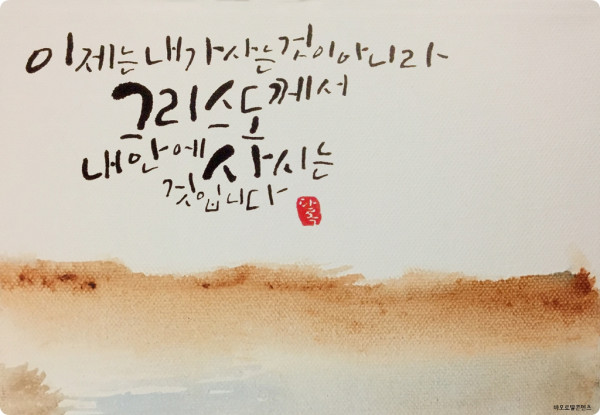 이제는 내가 사는 것이 아니라
그리스도께서
내 안에 사시는
것입니다